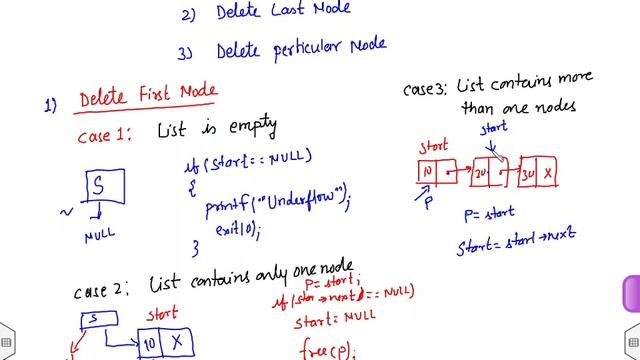 2) Delete Last Node
3) Delete perticular Node
1) Delete First Node
case 1: List is empty
S
NULL
if (start == NULL)
{
printf("Underflow");
exit(0);
}
case 2: List contains only one node
S
start
10 X
P = start;
if (start → next == NULL)
start = NULL
free(p);
case 3: List contains more
than one nodes
start
start
10 20 30 X
P
P = start
start = start → next